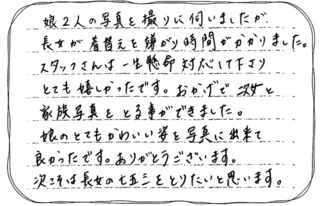 娘2人の写真を撮りに伺いましたが
長女が着替えを嫌がり時間がかかりました。
スタッフさんは一生懸命対応して下さり
とても嬉しかったです。おかげで次女と
家族写真をとる事ができました。
娘のとてもかわいい姿を写真に出来て
良かったです。ありがとうございます。
次こそは長女の七五三をとりたいと思います。